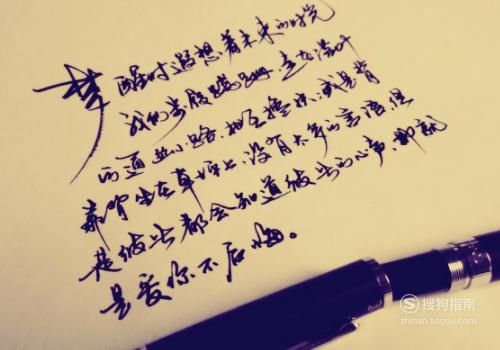 梦醒时遐想着未来的时光
我们步履蹒跚走在落叶
的通幽小路相互搀扶或是肩
并肩坐在草坪上没有太多的言语但
是彼此都会知道彼此的心声那就
是爱你不后悔。
搜狗指南
zhinan.sogou.com